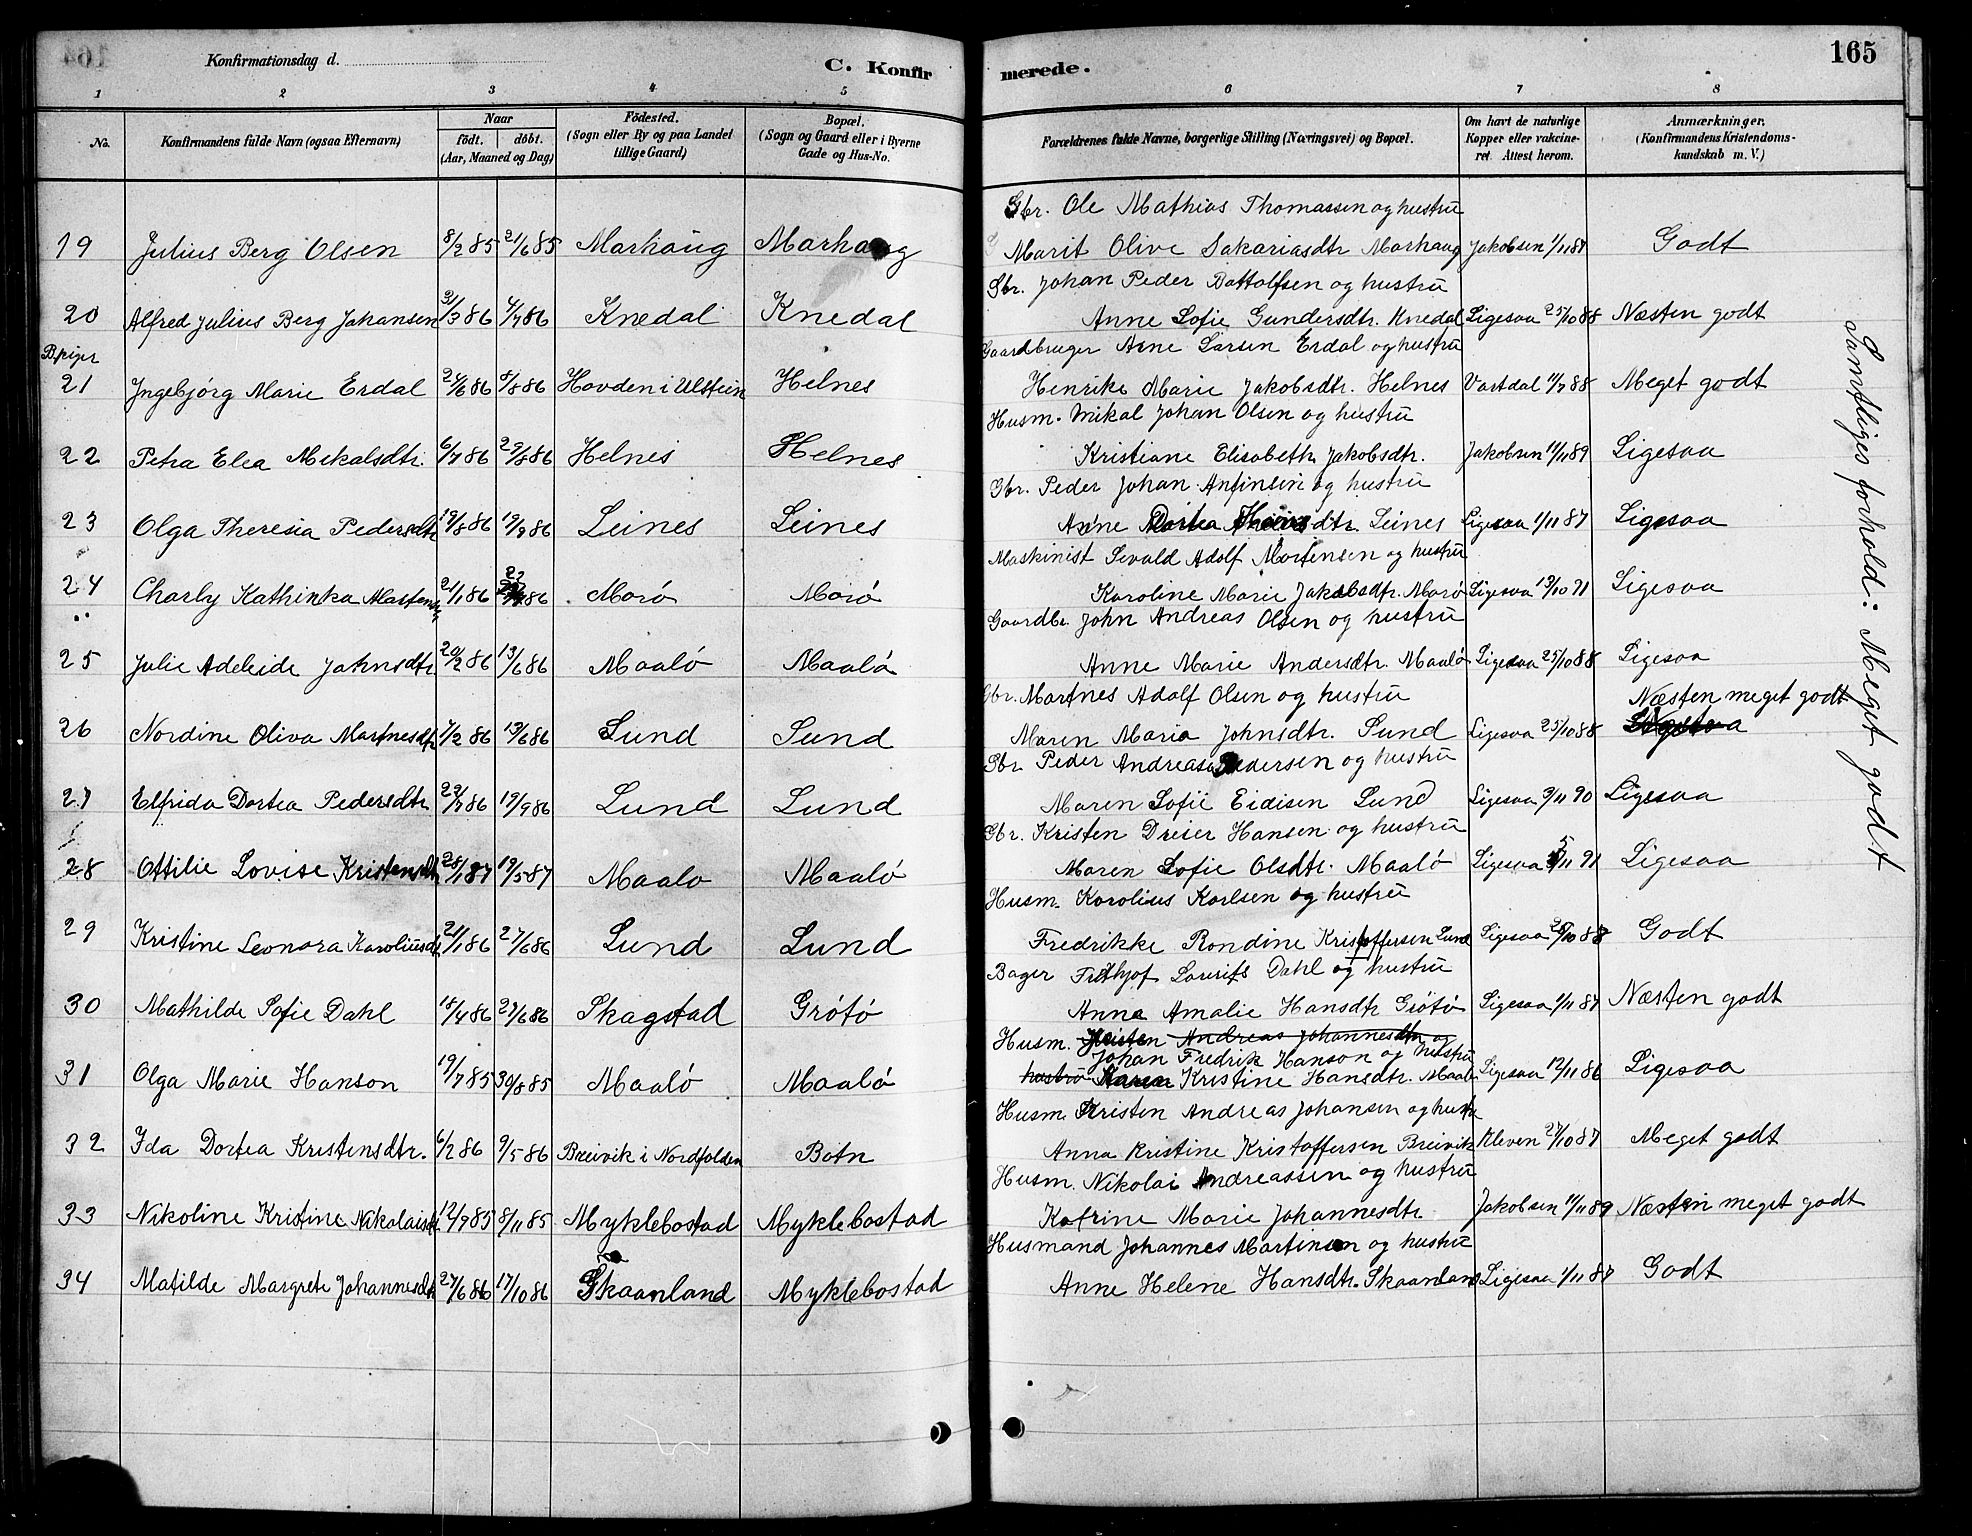 165
Konfirmationsdag d.
C. Konfirmerede.
1 2 3 4 5 6 7 8
No.
Konfirmandens fulde Navn (ogsaa Efternavn)
Naar
födt. döbt.
(Aar, Maaned og Dag)
Födested.
(Sogn eller By og paa Landet
tillige Gaard)
Bopæl.
(Sogn og Gaard eller i Byerne
Gade og Hus-No.
Forældrenes fulde Navne, borgerlige Stilling (Næringsvei) og Bopæl.
Om havt de naturlige
Kopper eller vakcine-
ret Attest herom.
Anmærkninger.
(Konfirmandens Kristendoms-
kundskab m. V.)
Gbr. Ole Mathias Thomassen og hustru
19 Julius Berg Olsen 8/2 85 21/6 85 Marhaug Marhaug Marit Olive Sakariasdtr Marhaug Jakobsen 1/11 87 Godt
Gbr. Johan Peder Bottolfsen og hustru
20 Alfred Julius Berg Johansen 31/3 86 4/7 86 Knedal Knedal Anne Sofie Gundersdtr. Knedal Ligesaa 25/10 88 Næsten godt
B. piger
Gaardbruger Arne Larsen Erdal og hustru
21 Ingebjørg Marie Erdal 24/6 86 8/8 86 Hovden i Ulstein Helnes Henrike Marie Jakobsdtr. Helnes Vartdal 11/7 88 Meget godt
Husm. Mikal Johan Olsen og hustru
22 Petra Elea Mekalsdtr. 6/7 86 29/8 86 Helnes Helnes Kristiane Elisabeth Jakobsdtr. Jakobsen 11/11 89 Ligesaa
Gbr. Peder Johan Anfinsen og hustru
23 Olga Theresia Pedersdtr 19/8 86 19/9 86 Leines Leines Anne Dortea dtr. Leines Ligesaa 1/11 87 Ligesaa
Maskinist Sevald Adolf Mortensen og hustru
24 Charly Kathinka 21/1 86 86 Morö Morö Karoline Marie Jakobsdtr. Morö Ligesaa 13/10 91 Ligesaa
Gaardbr. John Andreas Olsen og hustru
25 Julie Adeleide Johnsdtr. 20/2 86 13/6 86 Maalö Maalö Anne Marie Andersdtr. Maalö Ligesaa 25/10 88 Ligesaa
Gbr. Martnes Adolf Olsen og hustru Næsten meget godt
26 Nordine Oliva Martnesdtr 7/2 86 13/6 86 Lund Lund Maren Maria Johnsdtr. Lund Ligesaa 25/10 88
Gbr. Peder Andreas Pedersen og hustru
27 Elfrida Dortea Pedersdtr. 29/7 86 19/9 86 Lund Lund Maren Sofie Eidisen Lund Ligesaa 3/11 90 Ligesaa
Gbr. Kristen Dreier Hansen og hustru
28 Ottilie Lovise Kristensdtr 28/1 87 19/5 87 Maalo Maalö Maren Sofie Olsdtr. Maalö Ligesaa 5/11 91 Ligesaa
Husm. Karolius Karlsen og hustru
29 Kristine Leonora Karoliusdtr 21/1 86 27/6 86 Lund Lund Fredrikke Rondine Kristoffersen Lund Ligesaa 25/10 88 Godt
Bager Frithjof Laurits Dahl og hustru
30 Mathilde Sofie Dahl 18/4 86 27/6 86 Skagstad Grötö Anna Amalie Hansdtr Grötö Ligesaa 1/11 87 Næsten godt
Husm. Kristen Andreas Johannesdtr og
Johan Fredrik Hanson og hustru
31 Olga Marie Hanson 19/7 85 30/8 85 Maalö Maalö hustru Maren Kristine Hansdtr. Maalö Ligesaa 12/11 86 Ligesaa
Husm. Kristen Andreas Johansen og hustru
32 Ida Dortea Kristensdtr. 6/2 86 9/5 86 Breivik i Nordfolden Botn Anna Kristine Kristoffersen Breivik Kleven 27/10 87 Meget godt
Husm. Nikolai Andreassen og hustru
33 Nikoline Kristine Nikolaisdtr 12/9 85 8/11 85 Myklebostad Myklebostad Katrine Marie Johannesdtr. Jakobsen 11/11 89 Næsten meget godt
Husmand Johannes Martinsen og hustru
34 Matilde Margrete Johannesdtr 27/6 86 17/10 86 Skaanland Myklebostad Anne Helene Hansdtr. Skaanland Ligesaa 1/11 87 Godt
Samtliges forhold: Meget godt